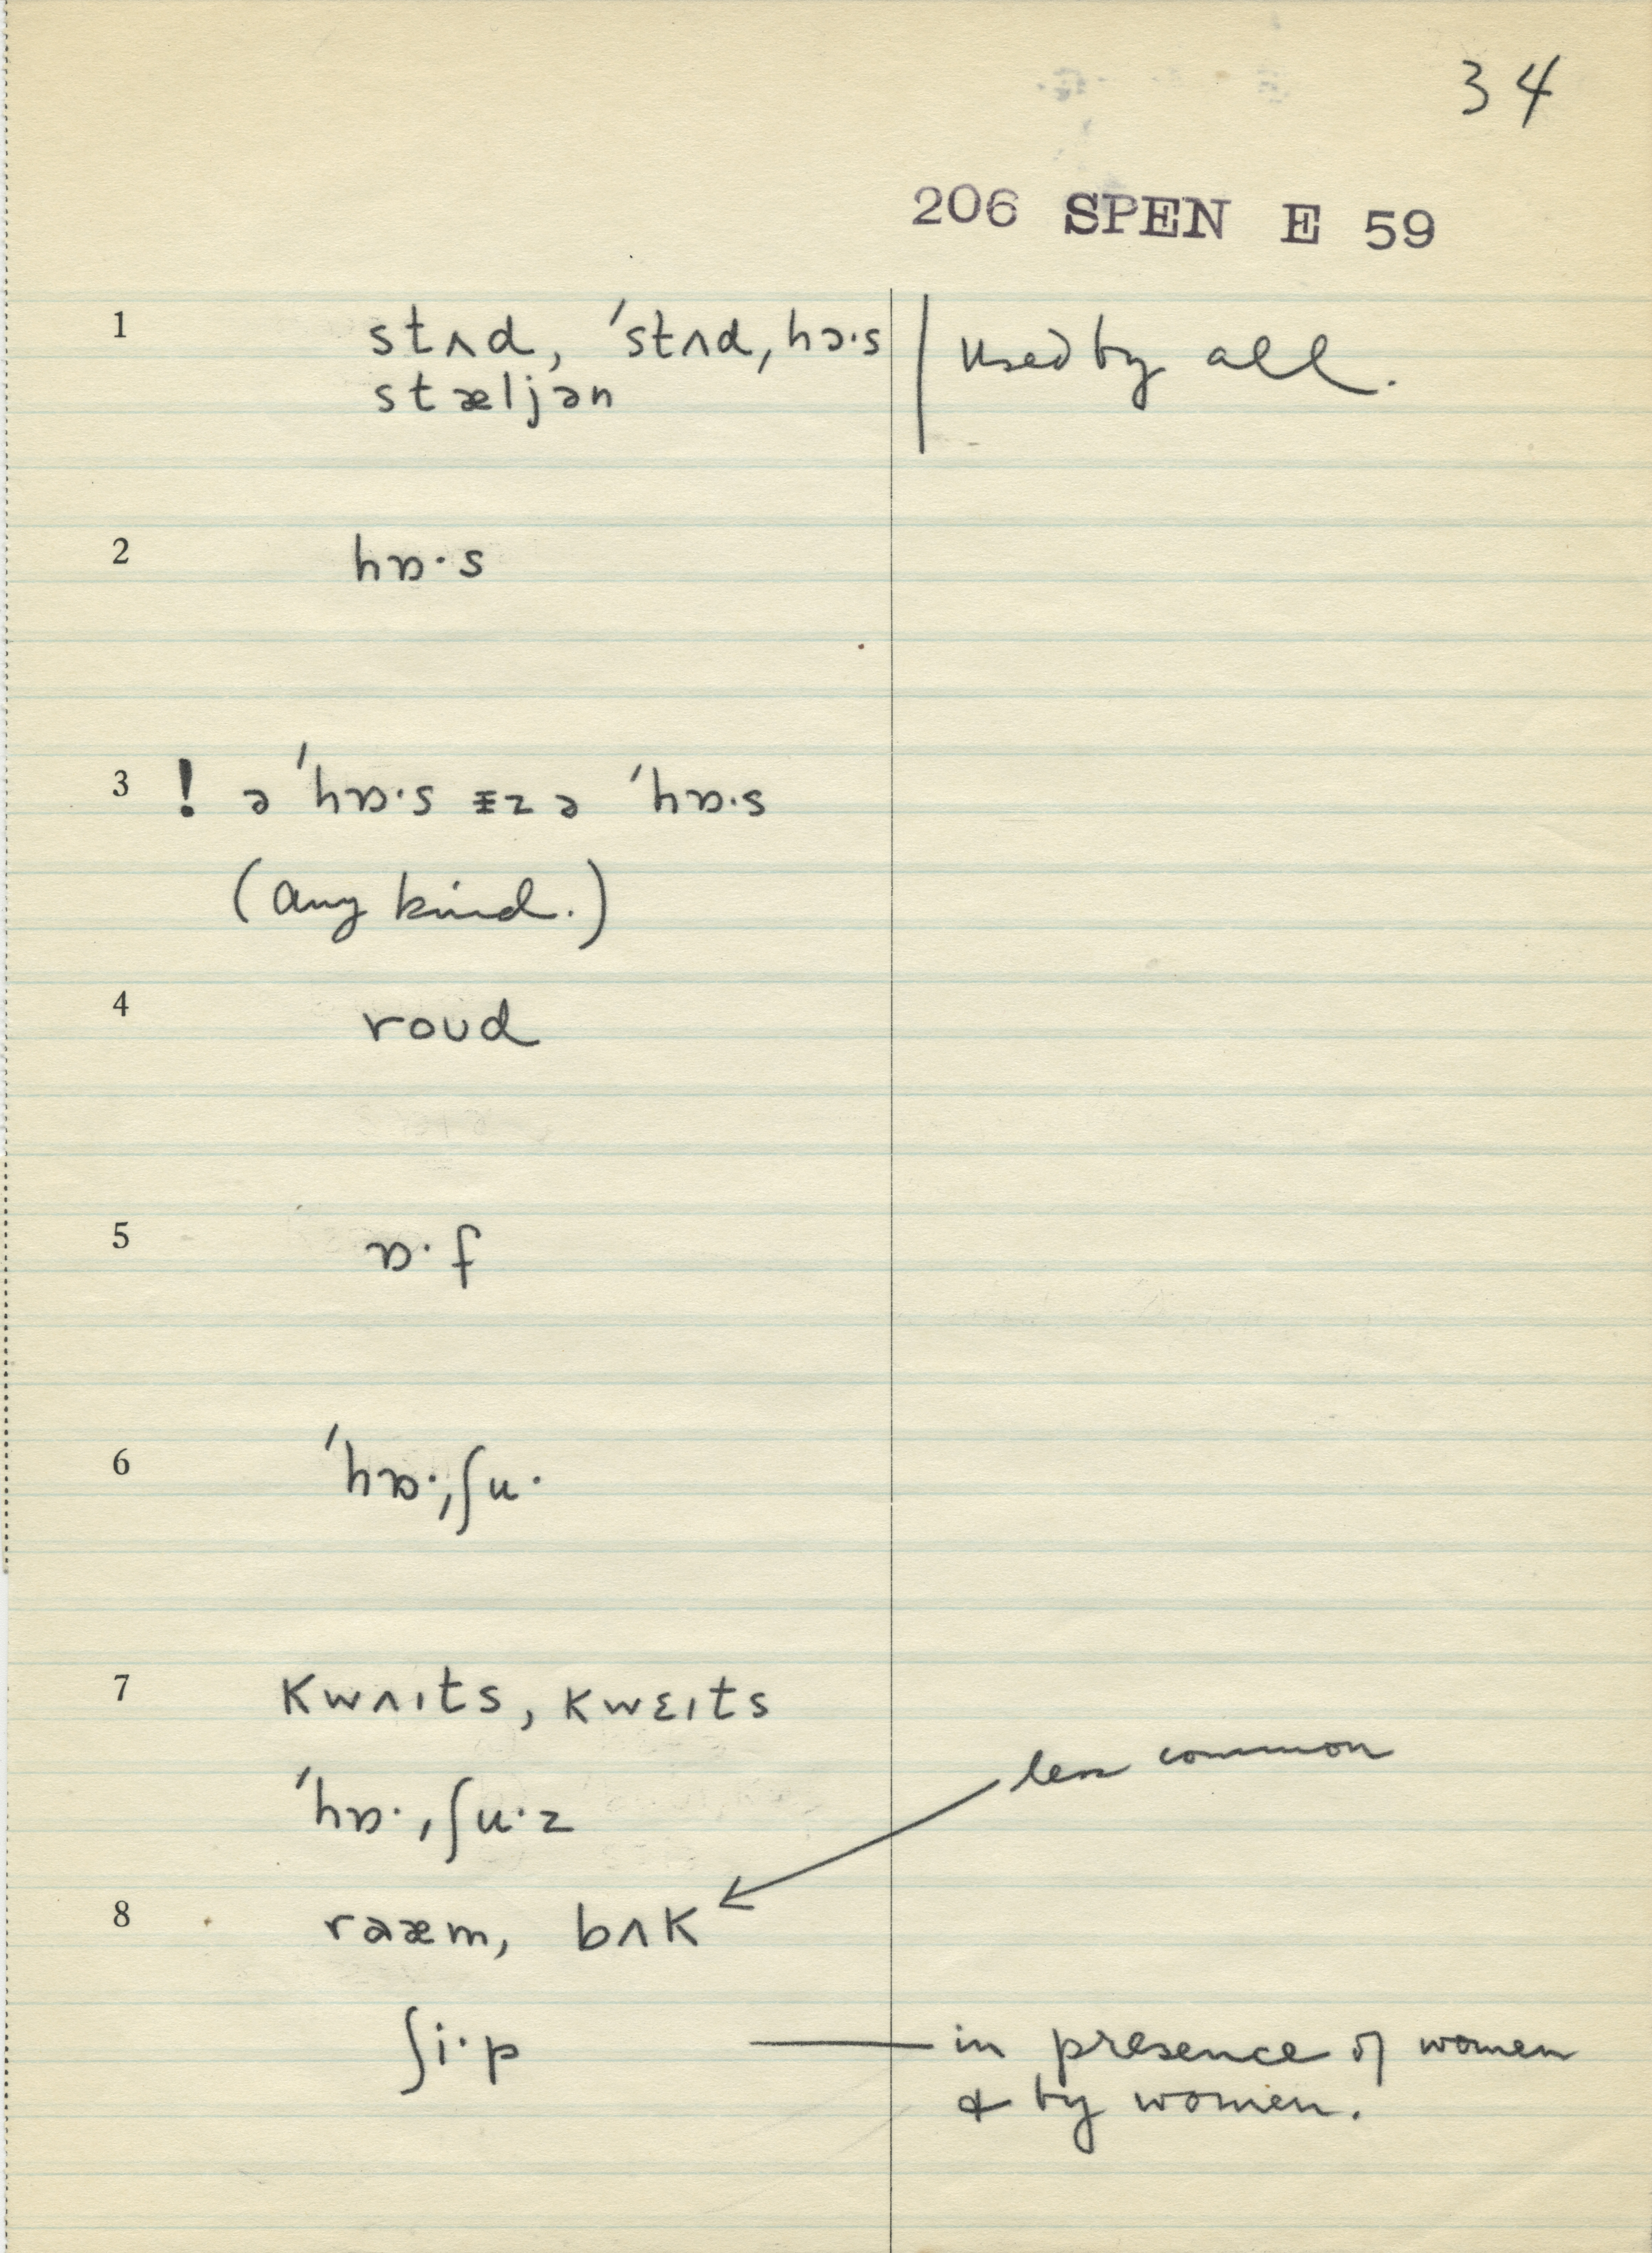 34
206 SPEN E 59
1 stʌd, ˈstʌd, hɔ·s | used by all.
stæljən
2 hɒ·s
3 ! ə ˈhɒ·s ɪz ə ˈhɒ·s
(any kind.)
4 roud
5 ɒ·f
6 ˈhɒ·ˌʃu·
7 kwʌɪts, kwɛɪts
less common
ˈhɒ·ˌʃu·z
8 raæm, bʌk
ʃi·p — in presence of women
& by women.